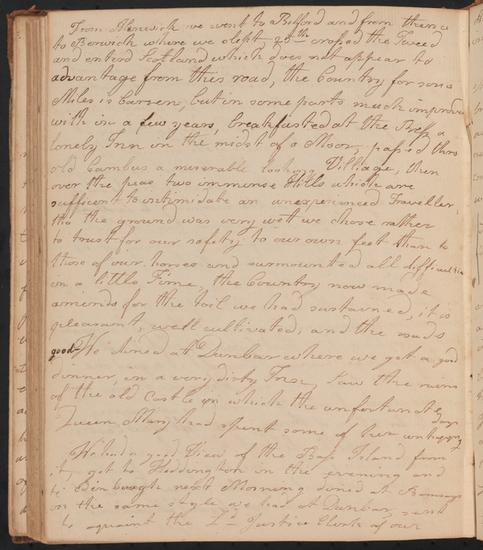 From Alnwick we went to Belford and from thence
to Berwick where we slept 25th crossed the Tweed
and enterd Scotland which does not appear to
advantage from this road, the Country for some
Miles is barren, but in some parts much improved
with in a few years, breakfasted at the Press a
lonely Inn in the midst of a Moor, passed thro
old Cambus a miserable looking Village, then
over the peas two immense Hills which are
sufficient to intimidate an unexperienced Traveller
tho the ground was very wet we chose rather
to trust for our safety to our own feet than to
those of our horses and surmounted all difficulties
in a little Time, the Country now made
amends for the toil we had sustained, it is
pleasant, well cultivated, and the roads
good We dined at Dunbar where we got a good
dinner, in a very dirty Inn, saw the ruins
of the old Castle in which the unfortunate
Queen Mary had spent some of her unhappy
days
We had a good View of the Bass Island from
it, got to Haddington in the evening and
to Edinburgh next Morning dined at
in the same style we had at Dunbar, sent
to acquaint the Ld Justice Clerk of our